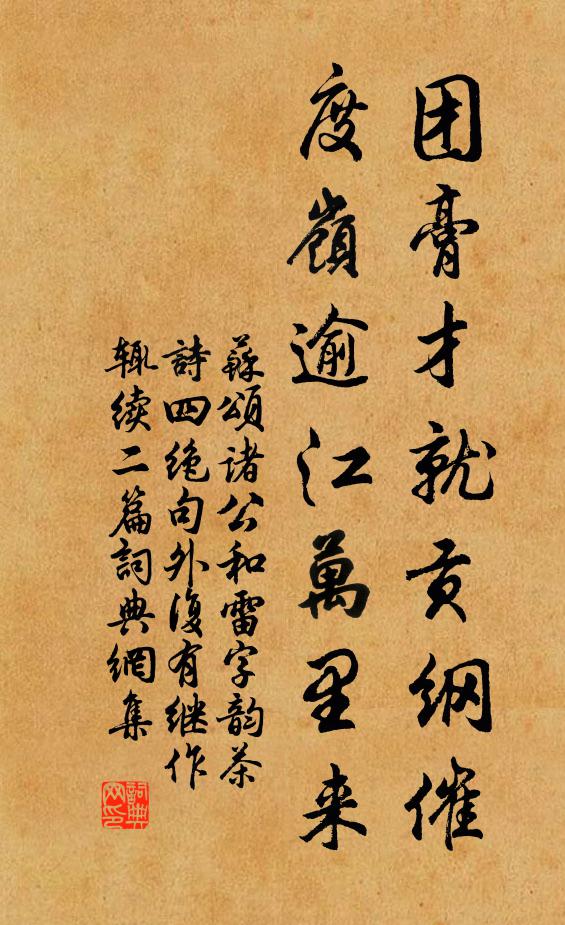 团膏才就贡纲催
度嶺逾江萬里来
蘇頌諸公和雷字韵茶
詩四绝句外復有继作
辄续二篇詞典網集
詞典网印